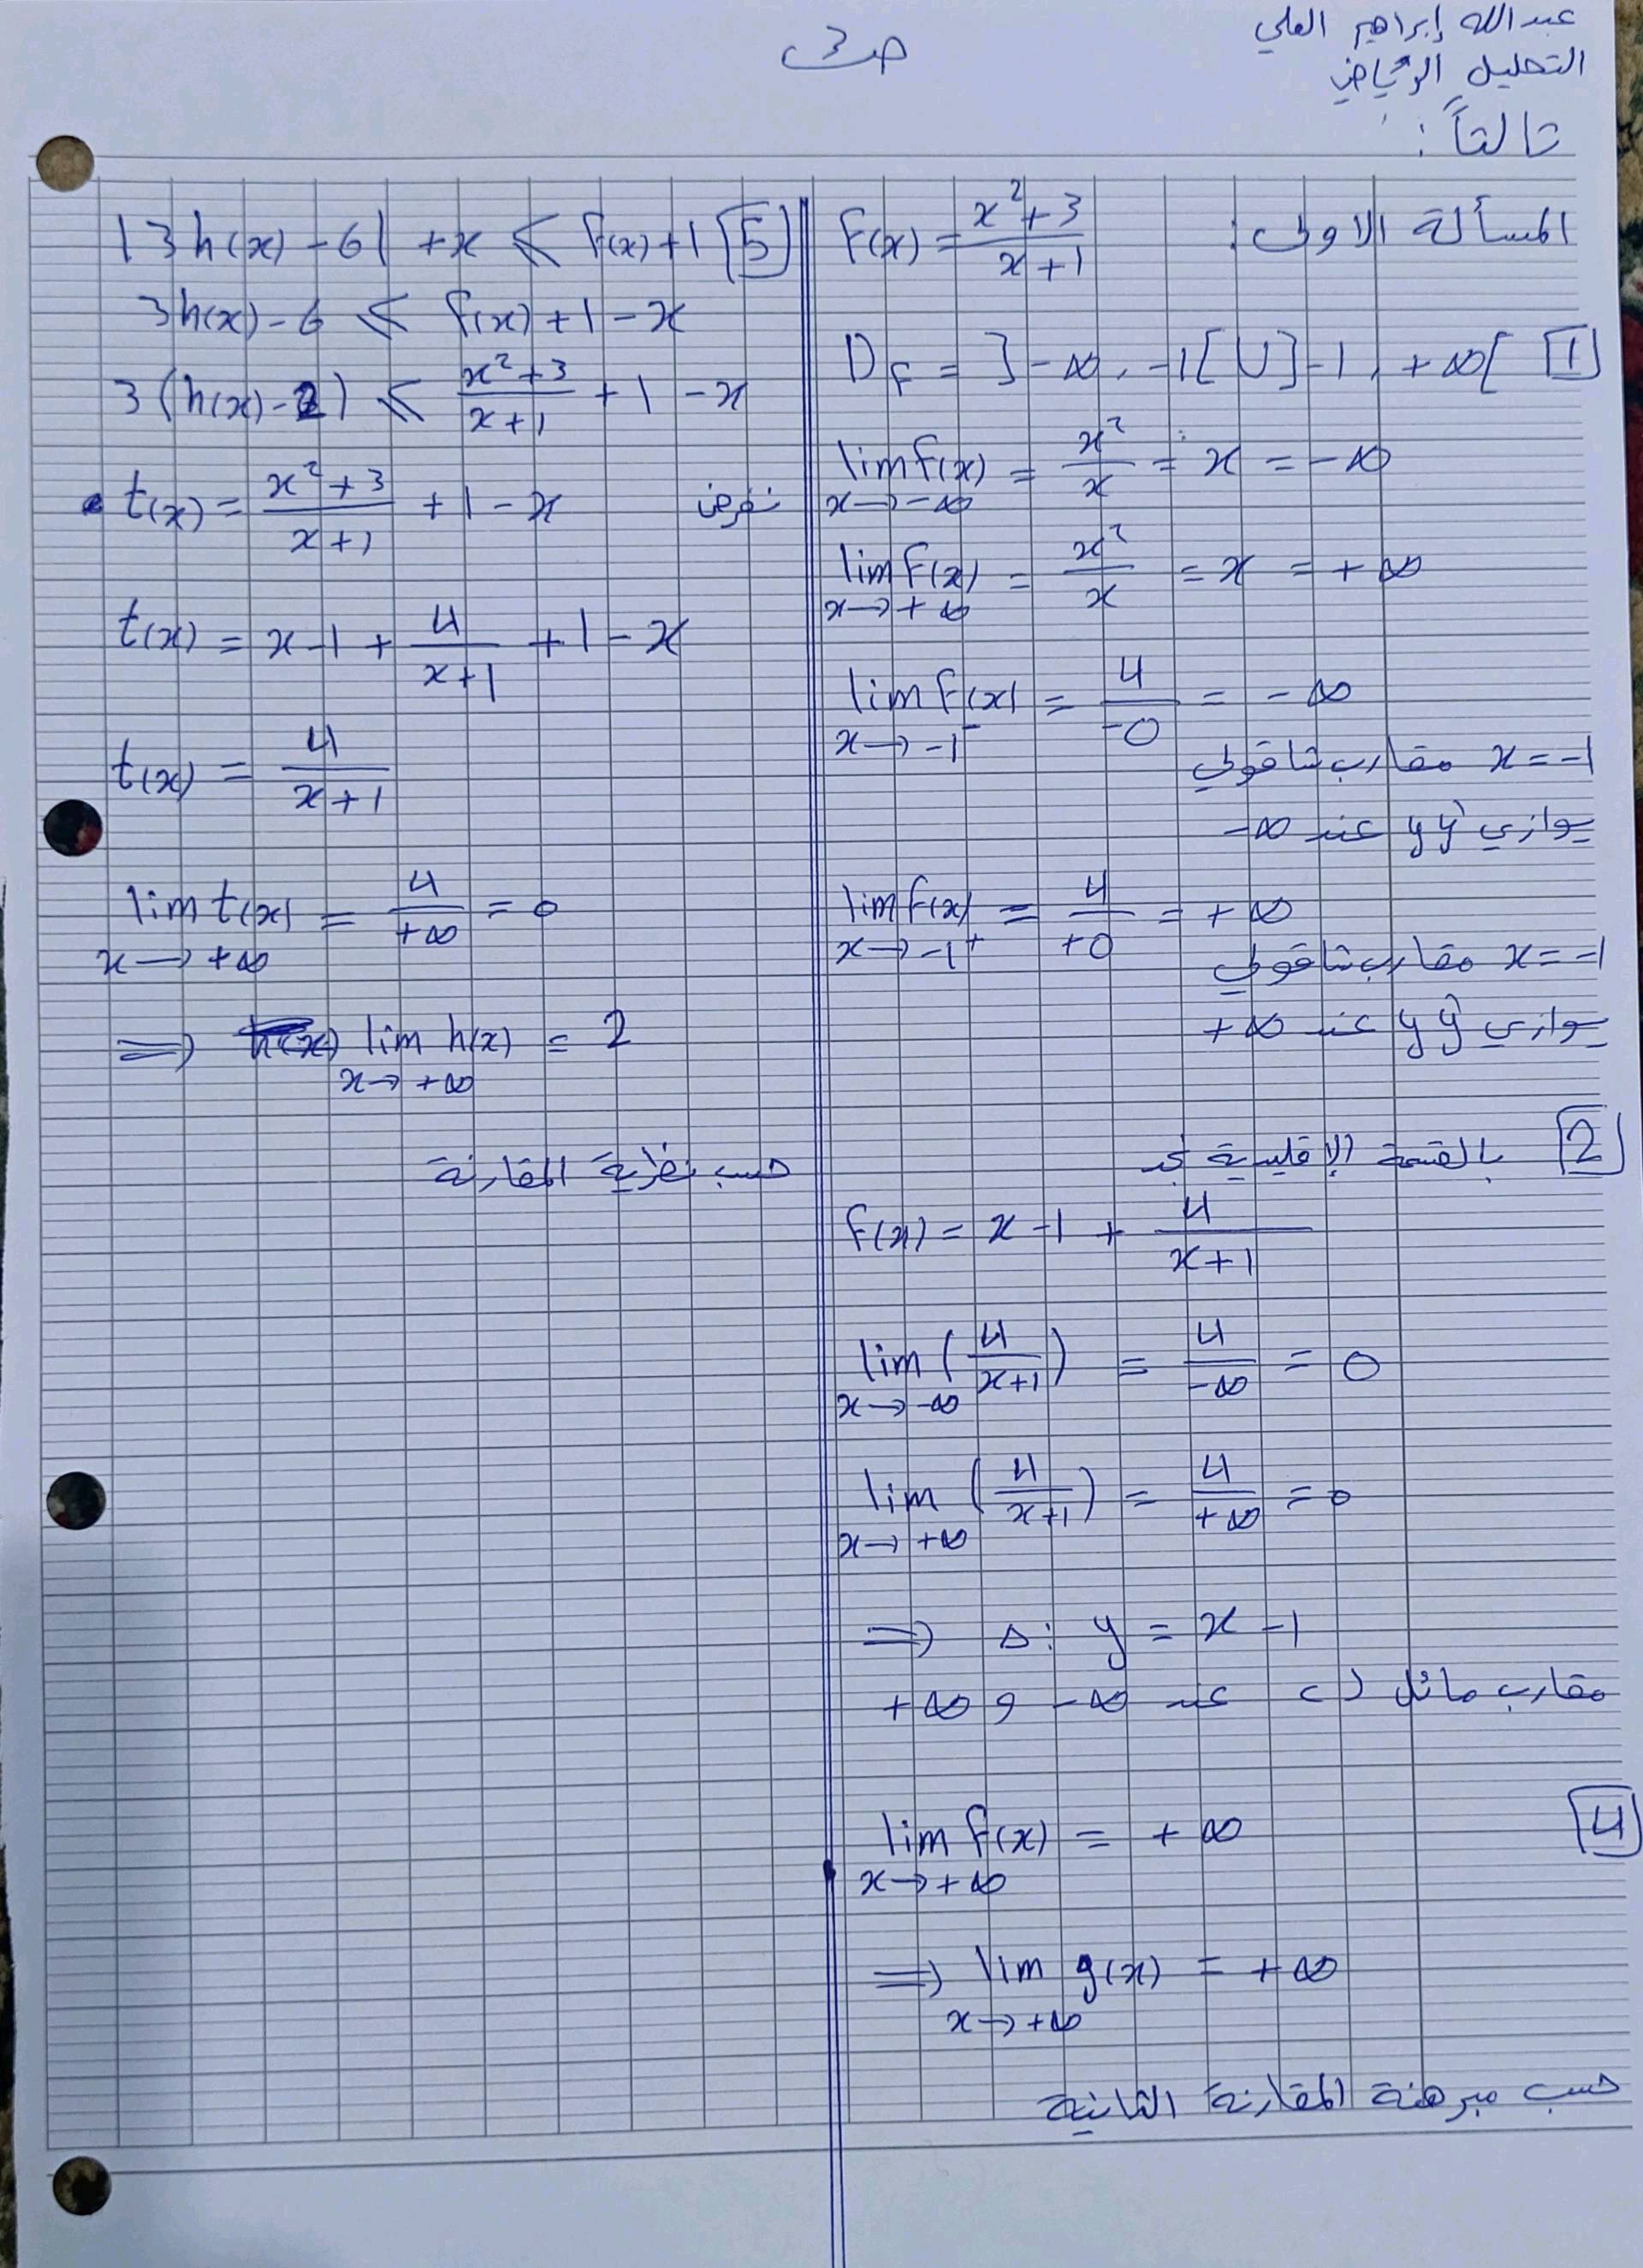 عبد الله إبراهيم العلي
التحليل الرياضي
ص3
ثالثاً:
المسألة الاولى: f(x) = (x²+3)/(x+1)
[1] D_f = ]-∞, -1[ U ]-1, +∞[
lim f(x) = x²/x = x = -∞
x→-∞
lim f(x) = x²/x = x = +∞
x→+∞
lim f(x) = 4/-0 = -∞
x→-1⁻
x = -1 مقارب شاقولي
يوازي yy' عند -∞
lim f(x) = 4/+0 = +∞
x→-1⁺
x = -1 مقارب شاقولي
يوازي yy' عند +∞
[2] بالقسمة الإقليدية نجد
f(x) = x-1 + 4/(x+1)
lim (4/(x+1)) = 4/-∞ = 0
x→-∞
lim (4/(x+1)) = 4/+∞ = 0
x→+∞
⇒ Δ: y = x-1
مقارب مائل لـ c عند -∞ و +∞
[4]
lim f(x) = +∞
x→+∞
⇒ lim g(x) = +∞
x→+∞
حسب مبرهنة المقارنة الثانية
[5] |3h(x) - 6| + x ≤ f(x) + 1
3h(x) - 6 ≤ f(x) + 1 - x
3(h(x) - 2) ≤ (x²+3)/(x+1) + 1 - x
نفرض t(x) = (x²+3)/(x+1) + 1 - x
t(x) = x-1 + 4/(x+1) + 1 - x
t(x) = 4/(x+1)
lim t(x) = 4/+∞ = 0
x→+∞
⇒ lim h(x) = 2
x→+∞
حسب نظرية المقارنة